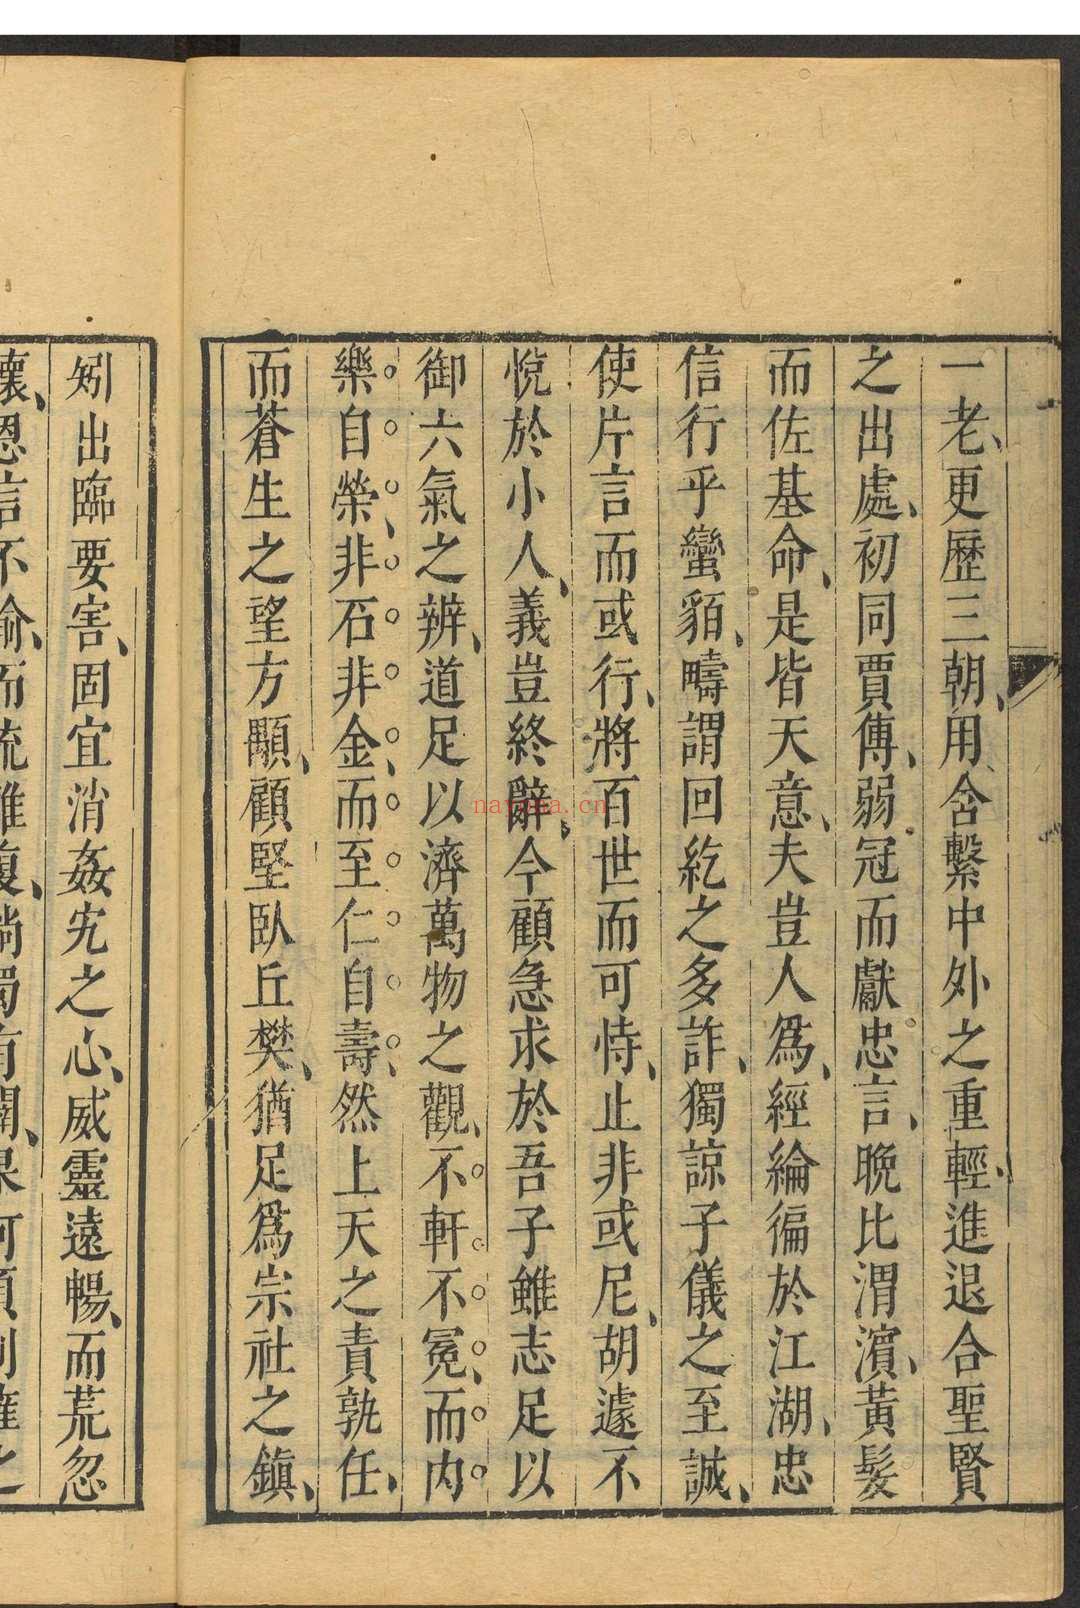 一老、更歷三朝、用舍繫中外之重輕、進退合聖賢
之出處、初同賈傅、弱冠而獻忠言、晩比渭濵、黃髮
而佐基命、是皆天意、夫豈人爲、經綸徧於江湖、忠
信行乎蠻貊、疇謂回紇之多詐、獨諒子儀之至誠、
使片言而或行、將百世而可恃、止非或尼、胡遽不
悅於小人、義豈終辭、今顧急求於吾子雖志足以
御六氣之辨、道足以濟萬物之觀、不軒不冕、而內
樂自榮、非石非金、而至仁自壽、然上天之責孰任、
而蒼生之望方顒、顧堅臥丘樊、猶足爲宗社之鎮、
矧出臨要害、固宜消姦宄之心、威靈遠暢、而荒忽
懷、恩信不渝、而流離復、倘獨有
navona.cn